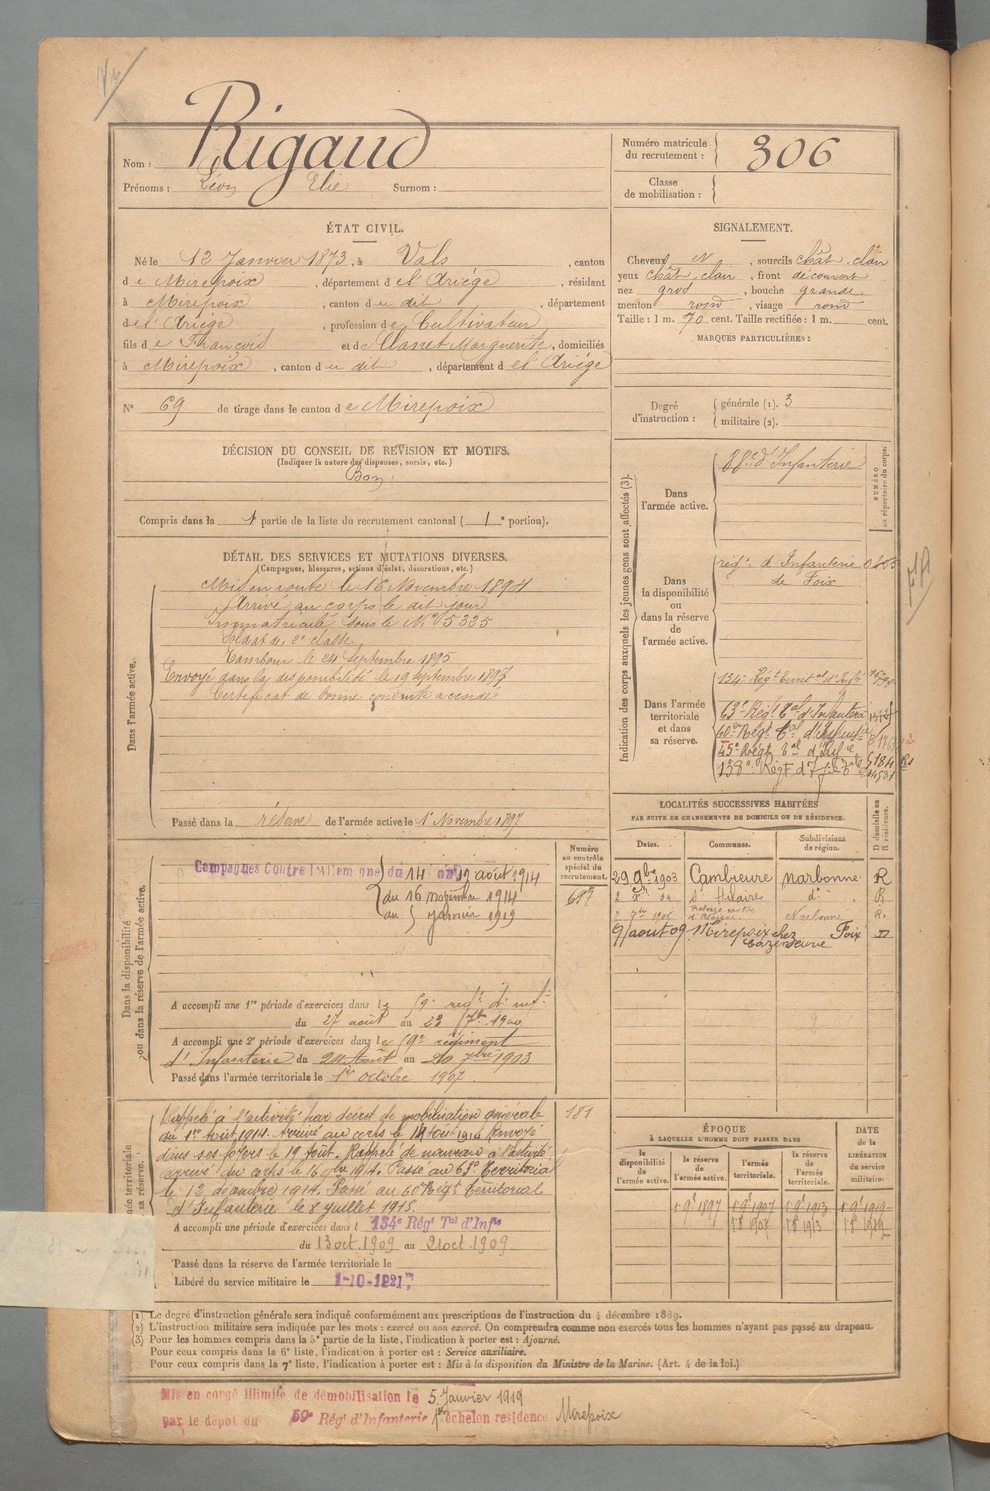 Nom : Rigaud
Prénoms : Léon Elie Surnom :
Numéro matricule du recrutement : 306
Classe de mobilisation :
ÉTAT CIVIL.
Né le 12 Janvier 1873, à Vals, canton
de Mirepoix, département de l'Ariége, résidant
à Mirepoix, canton du dit, département
de l'Ariége, profession de Cultivateur
fils de François et de Marguerite, domiciliés
à Mirepoix, canton du dit, département de l'Ariége
N° 69 de tirage dans le canton de Mirepoix
SIGNALEMENT.
Cheveux N, sourcils chât. clair
yeux chât. clair, front découvert
nez gros, bouche grande
menton rond, visage rond
Taille : 1 m. 70 cent. Taille rectifiée : 1 m. cent.
MARQUES PARTICULIÈRES :
Degré d'instruction : générale (1). 3
militaire (2).
DÉCISION DU CONSEIL DE REVISION ET MOTIFS.
(Indiquer la nature des dispenses, sursis, etc.)
Bon
Compris dans la 1 partie de la liste du recrutement cantonal (1e portion).
DÉTAIL DES SERVICES ET MUTATIONS DIVERSES.
(Campagnes, blessures, actions d'éclat, décorations, etc.)
Dans l'armée active.
Mis en route le 16 Novembre 1894
Arrivé au corps le dit jour
Immatriculé sous le N° 5325
Soldat de 2e classe
Tambour le 24 Septembre 1895
Envoyé dans la disponibilité le 19 septembre 1897
Certificat de bonne conduite accordé
Passé dans la réserve de l'armée active le 1er Novembre 1897
Indication des corps auxquels les jeunes gens sont affectés (3).
NUMÉRO au répertoire du corps.
Dans l'armée active.
88e d'Infanterie
Dans la disponibilité ou dans la réserve de l'armée active.
régt. d'Infanterie
de Foix
Dans l'armée territoriale et dans sa réserve.
134e Régt territal d'Infie
63e Régt Tal d'Infanterie
60e Régt Tal d'Infanterie
45e Régt Tal d'Infie
138e Régt d'Infie Tale
LOCALITÉS SUCCESSIVES HABITÉES
PAR SUITE DE CHANGEMENTS DE DOMICILE OU DE RÉSIDENCE.
Dates. Communes. Subdivisions de région. D domicile ou R résidence.
29 9bre 1903 Cambieure narbonne R
St Hilaire do R
Narbonne R
9 aout 09 Mirepoix chez Cazeneuve Foix D
Dans la disponibilité ou dans la réserve de l'armée active.
Numéro au contrôle spécial du recrutement.
Campagnes Contre l'Allemagne du 14 au 19 août 1914
du 16 novembre 1914
au 5 Janvier 1919
A accompli une 1re période d'exercices dans le 59e régt d'inf.
du 27 août au 23 7bre 1900
A accompli une 2e période d'exercices dans le 59e régiment
d'Infanterie du 24 Août au 20 7bre 1903
Passé dans l'armée territoriale le 1er octobre 1907
181
Rappelé à l'activité par décret de mobilisation générale
du 1er Août 1914. Arrivé au corps le 14 Août 1914 Renvoyé
dans ses foyers le 19 Août. Rappelé de nouveau à l'activité
arrivé au corps le 16 9bre 1914. Passé au 63e Territorial
le 12 décembre 1914. Passé au 60e Régt territorial
d'Infanterie le 8 juillet 1915.
A accompli une période d'exercices dans l 134e Régt Tal d'Infie
du 13 oct. 1909 au 21 oct. 1909
Passé dans la réserve de l'armée territoriale le
Libéré du service militaire le 1-10-1921
ÉPOQUE
À LAQUELLE L'HOMME DOIT PASSER DANS
la disponibilité de l'armée active. la réserve de l'armée active. l'armée territoriale. la réserve de l'armée territoriale.
DATE de la LIBÉRATION du service militaire.
(1) Le degré d'instruction générale sera indiqué conformément aux prescriptions de l'instruction du 4 décembre 1889.
(2) L'instruction militaire sera indiquée par les mots : exercé ou non exercé. On comprendra comme non exercés tous les hommes n'ayant pas passé au drapeau.
(3) Pour les hommes compris dans la 5e partie de la liste, l'indication à porter est : Ajourné.
Pour ceux compris dans la 6e liste, l'indication à porter est : Service auxiliaire.
Pour ceux compris dans la 7e liste, l'indication à porter est : Mis à la disposition du Ministre de la Marine. (Art. 4 de la loi.)
Mis en congé illimité de démobilisation le 5 Janvier 1919
par le dépôt du 59e Régt d'Infanterie échelon résidence Mirepoix